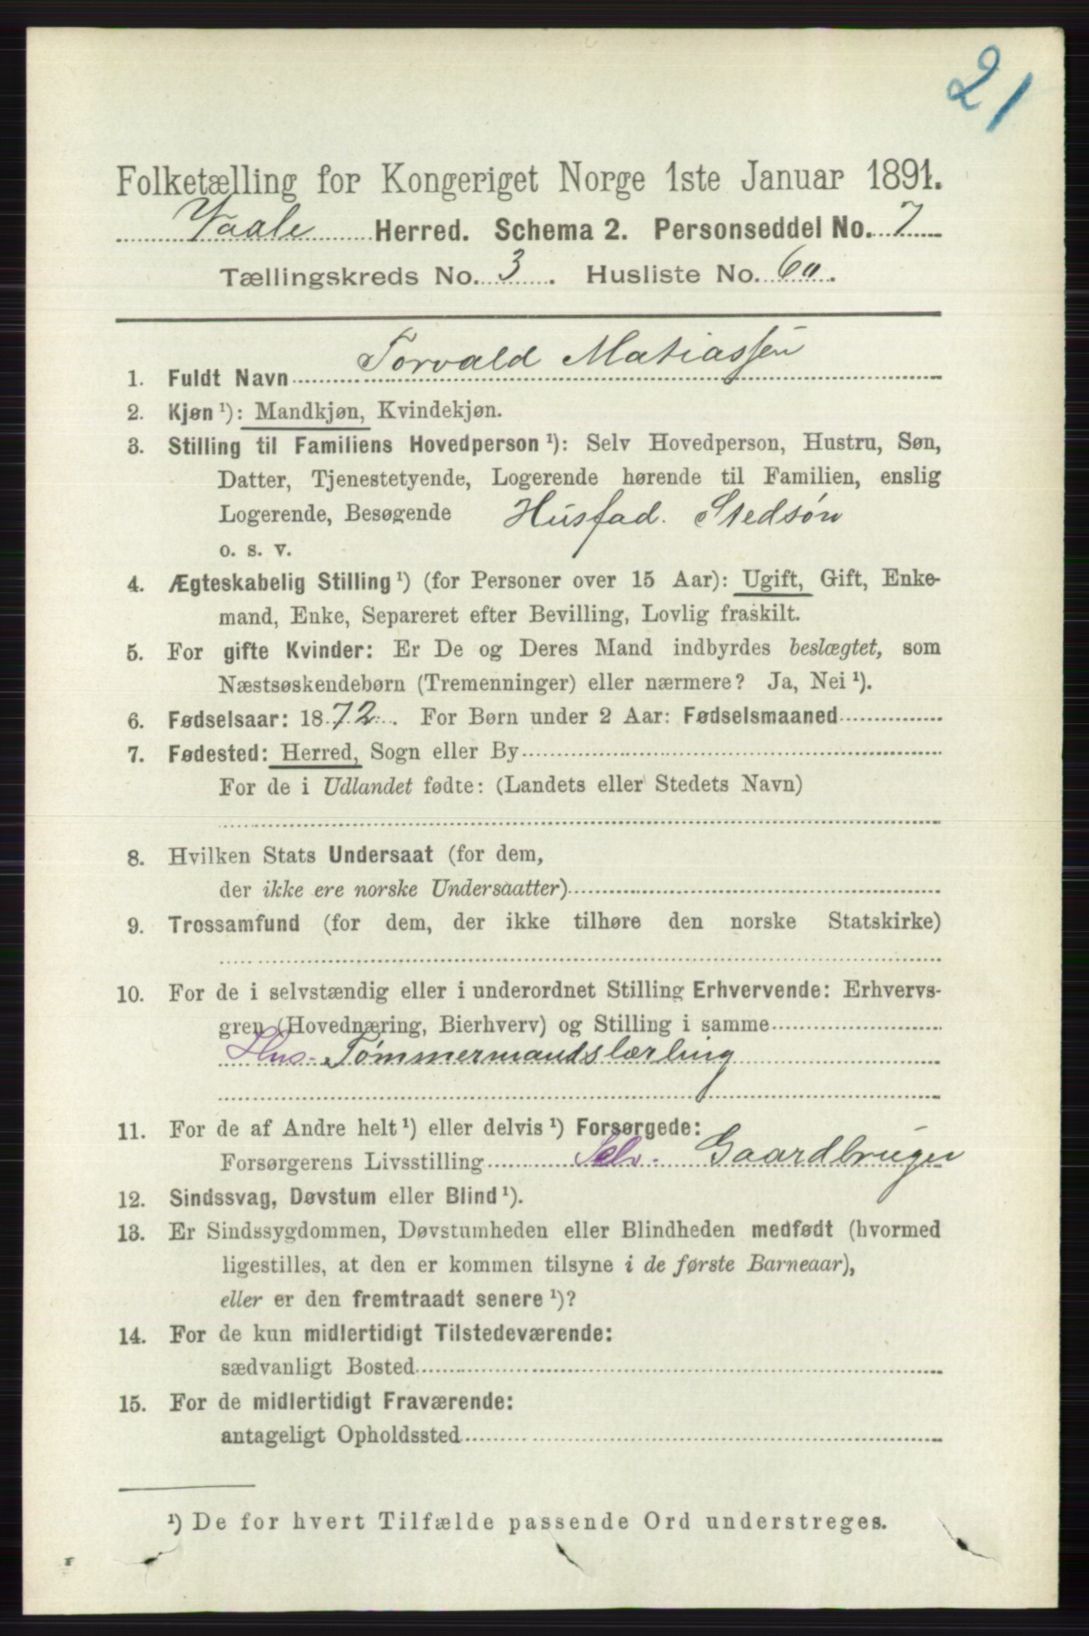 21
Folketælling for Kongeriget Norge 1ste Januar 1891.
Vaale Herred. Schema 2. Personseddel No. 7
Tællingskreds No. 3. Husliste No. 60.
1. Fuldt Navn Torvald Matiassen
2. Kjøn ¹): Mandkjøn, Kvindekjøn.
3. Stilling til Familiens Hovedperson ¹): Selv Hovedperson, Hustru, Søn,
Datter, Tjenestetyende, Logerende hørende til Familien, enslig
Logerende, Besøgende Husfad. Stedsøn
o. s. v.
4. Ægteskabelig Stilling ¹) (for Personer over 15 Aar): Ugift, Gift, Enke-
mand, Enke, Separeret efter Bevilling, Lovlig fraskilt.
5. For gifte Kvinder: Er De og Deres Mand indbyrdes beslægtet, som
Næstsøskendebørn (Tremenninger) eller nærmere? Ja, Nei ¹).
6. Fødselsaar: 1872. For Børn under 2 Aar: Fødselsmaaned
7. Fødested: Herred, Sogn eller By
For de i Udlandet fødte: (Landets eller Stedets Navn)
8. Hvilken Stats Undersaat (for dem,
der ikke ere norske Undersaatter)
9. Trossamfund (for dem, der ikke tilhøre den norske Statskirke)
10. For de i selvstændig eller i underordnet Stilling Erhvervende: Erhvervs-
gren (Hovednæring, Bierhverv) og Stilling i samme
Hus- Tømmermandslærling
11. For de af Andre helt ¹) eller delvis ¹) Forsørgede:
Forsørgerens Livsstilling Selv. Gaardbruger
12. Sindssvag, Døvstum eller Blind ¹).
13. Er Sindssygdommen, Døvstumheden eller Blindheden medfødt (hvormed
ligestilles, at den er kommen tilsyne i de første Barneaar),
eller er den fremtraadt senere ¹)?
14. For de kun midlertidigt Tilstedeværende:
sædvanligt Bosted
15. For de midlertidigt Fraværende:
antageligt Opholdssted
¹) De for hvert Tilfælde passende Ord understreges.